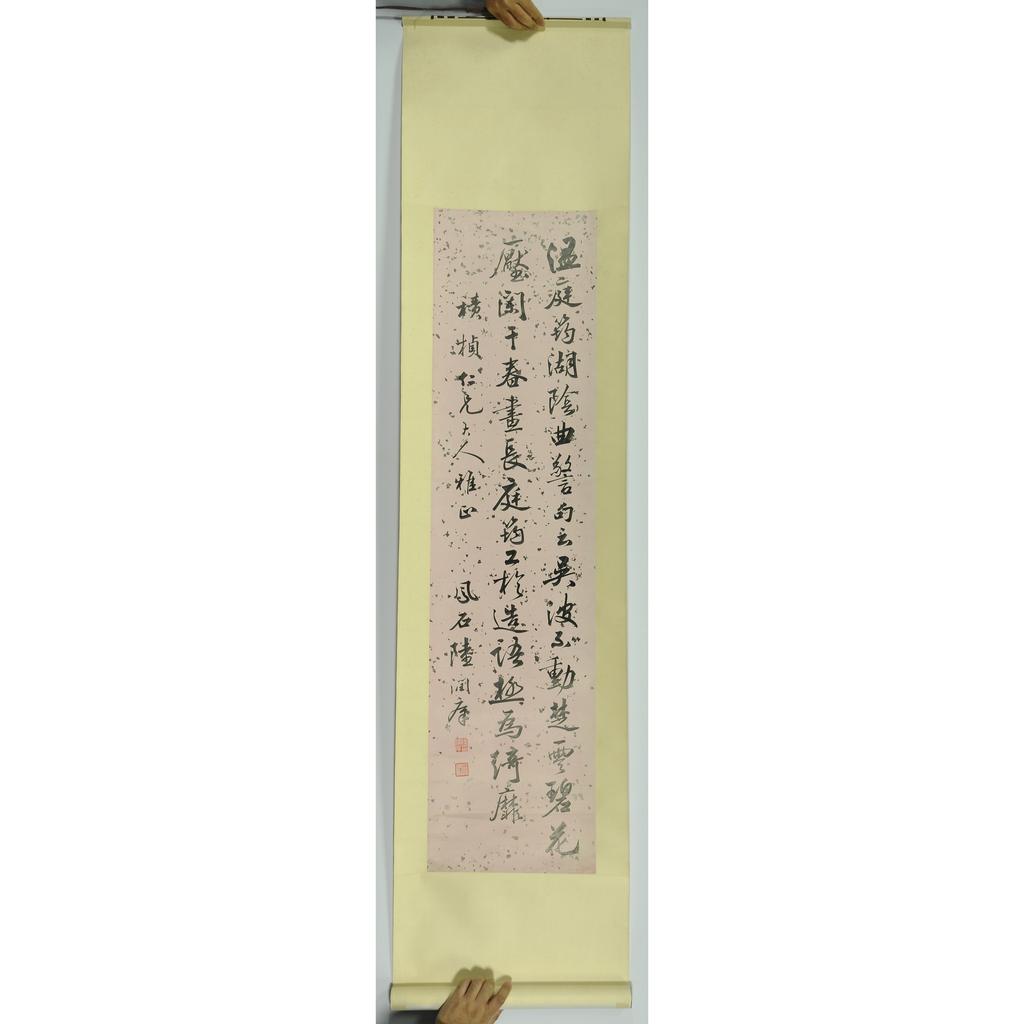 温庭筠湖陰曲警句云吴波不動楚雲碧花
壓闌干春晝長庭筠工於造語極為綺靡
積楨仁兄大人雅正
鳳石陸潤庠